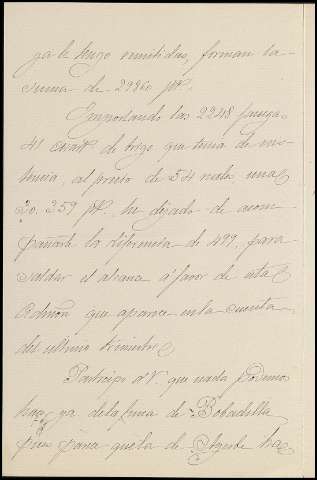 ya le tengo remitidas, forman la
suma de 29860 pts.
Importando las 2248 fanegas
41 cuart. de trigo que tenia de exis-
tencia, al precio de 54 reales una
30.359 pts. he dejado de acom-
pañarle la diferencia de 499, para
saldar el alcance á favor de esta
Admon que aparece en la cuenta
del ultimo trimestre
Participo á V. que nada podemos
hacer ya de la finca de Bobadilla
pues para que la de